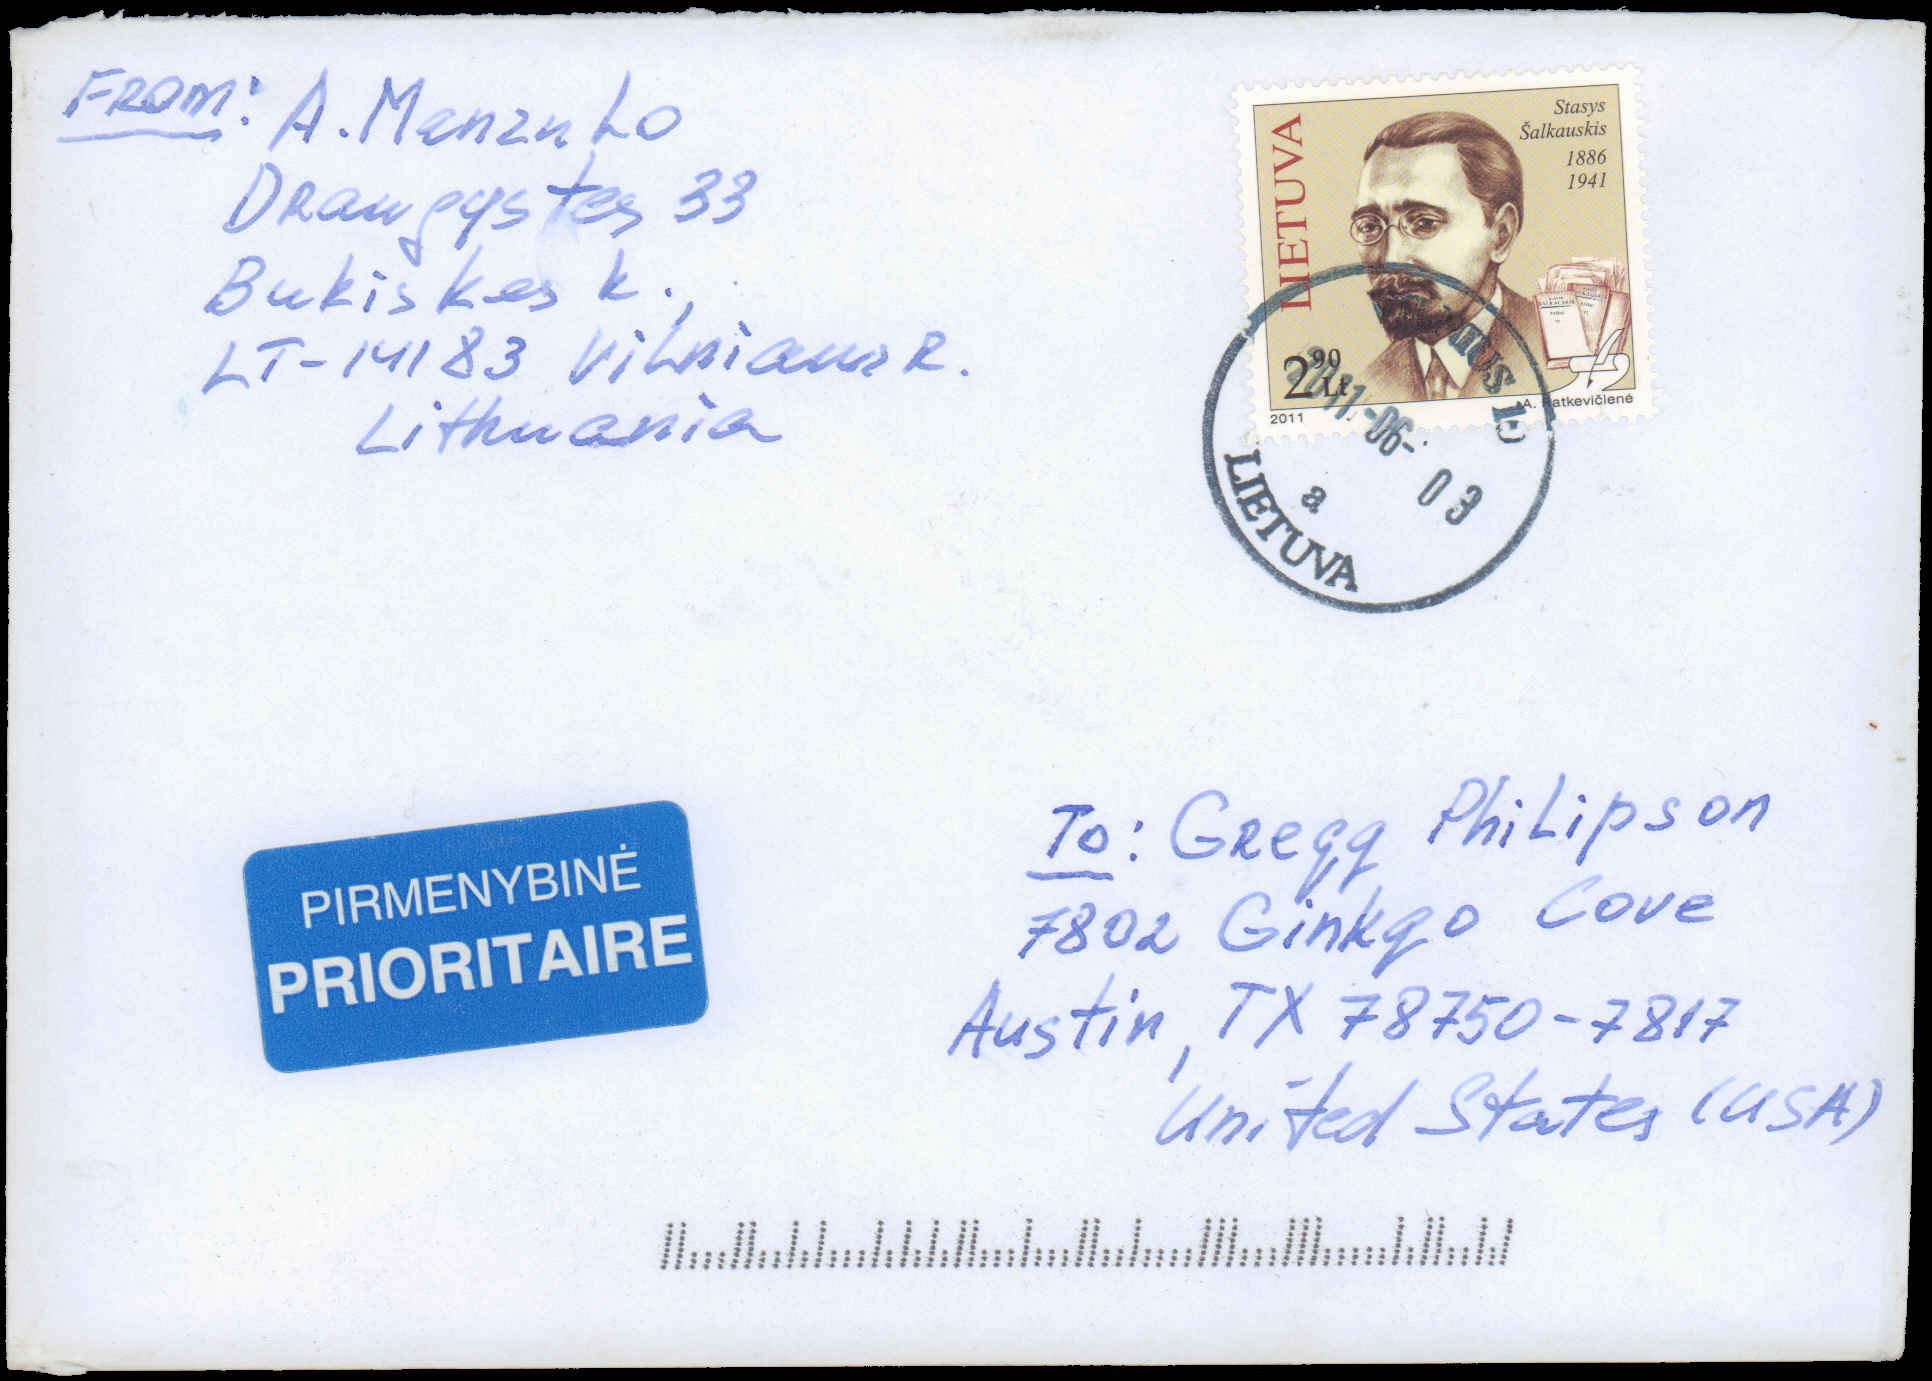 FROM: A. Menzulo
Draugystes 33
Bukiskes k.,
LT-14183 Vilniaus R.
Lithuania
Stasys
Šalkauskis
1886
1941
LIETUVA
2 90 Lt
2011
A. Ratkevičienė
2011-06-
03
a
LIETUVA
PIRMENYBINĖ
PRIORITAIRE
To: Gregg Philipson
7802 Ginkgo Cove
Austin, TX 78750-7817
United States (USA)